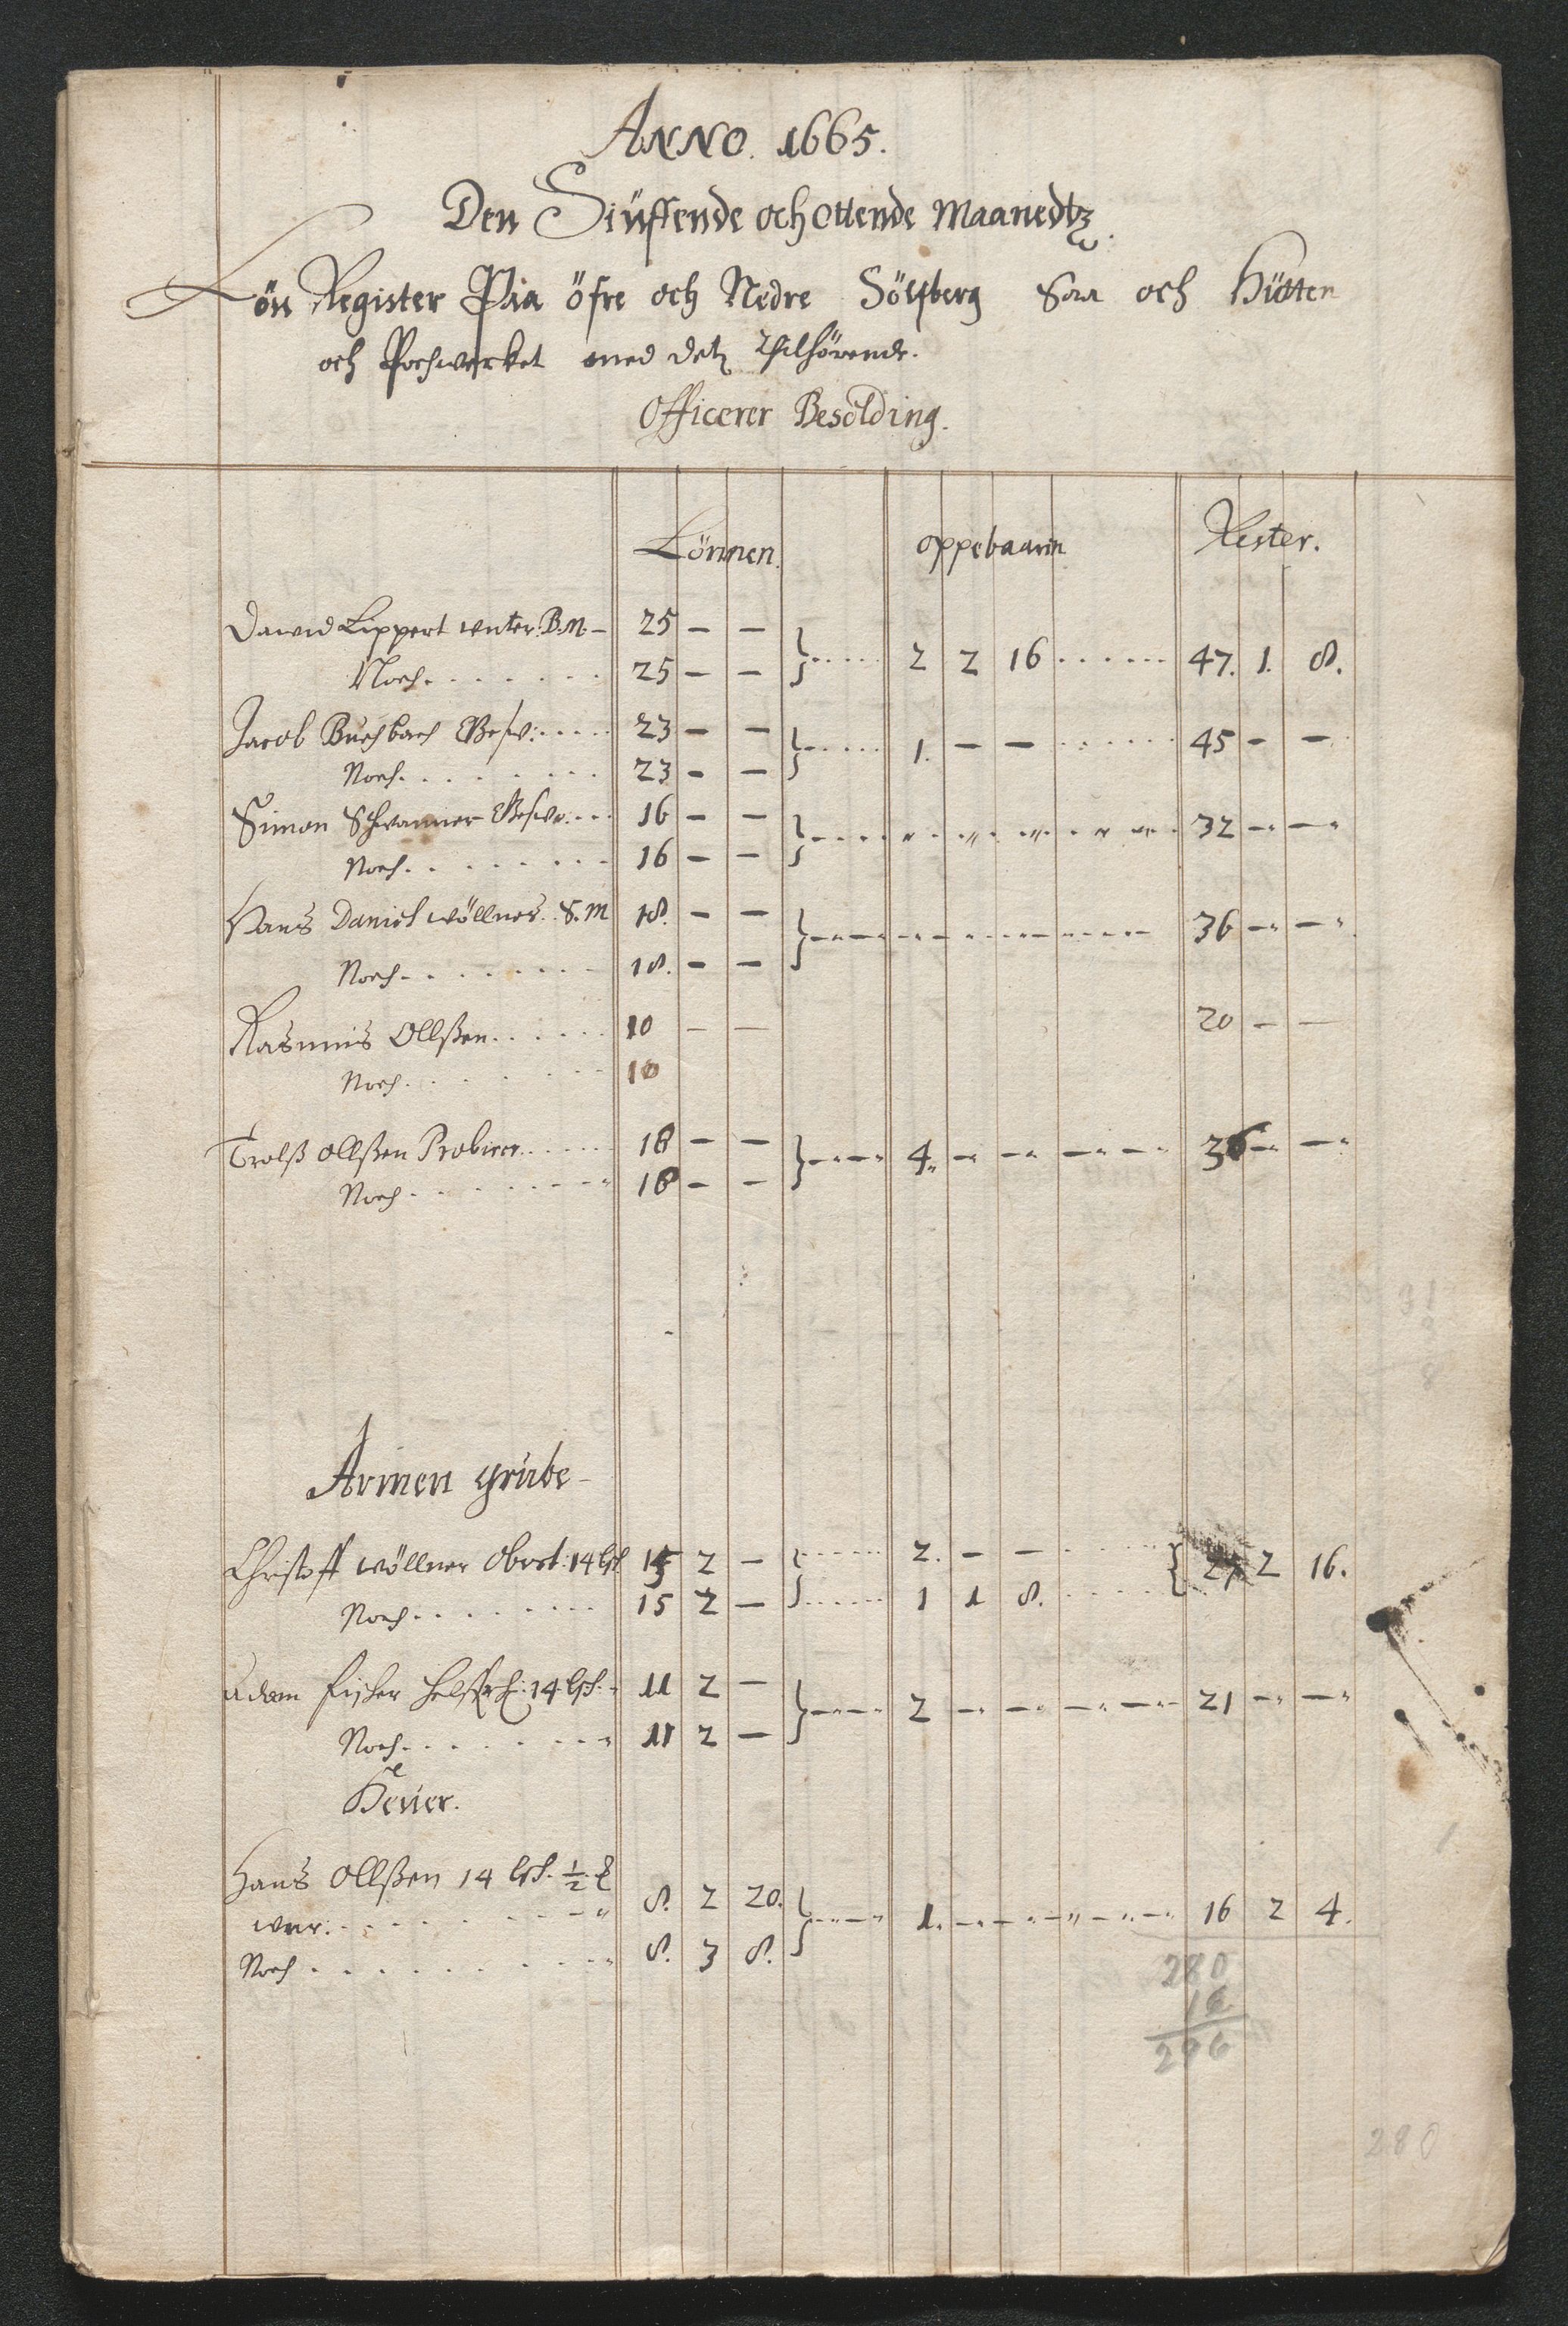 ANNO. 1665.
Den Siuffende och ottende Maanedtz
Lön Register Paa öfre och Nedre Sölfberg Saa och Hütten
och Pochwerket med detz Tilhörende.
Officerer Besolding.
Lönnen. oppebaarin Rester.
Dawid Lippert unter. B.M. — 25 — — 2 2 16 47. 1. 8.
Noch. 25 — —
Jacob Buchbach Geschw: 23 — — 1. — — 45 — —
Noch. 23 — —
Simon Schwanner Geschw. 16 — — 32 — —
Noch. 16 — —
Hans Daniel wöllner. S.M 18. — — 36 — —
Noch 18. — —
Rasmus Ollßen. 10 — — 20 — —
Noch. 10
Trolß Ollßen Probirer. 18 — — 4 — — 36 — —
Noch 18 — —
Armen grube
Christoff wöllner Obrst: 14 sch. 15 2 — 2. — — 27 2 16.
Noch. 15 2 — 1 1 8.
Adam fischer 14 sch. 11 2 — 2 — — 21 — —
Noch. 11 2 —
Heüer.
Hans Ollßen 14 sch. ½ 8. 2 20. 1. — — 16 2 4.
Noch 8. 3 8.
280
16
296
280